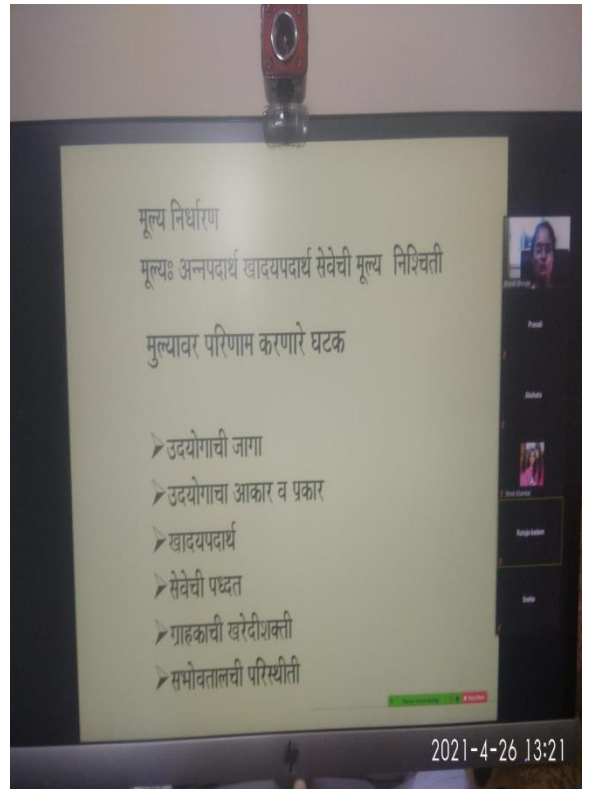 मूल्य निर्धारण
मूल्यः अन्नपदार्थ खादयपदार्थ सेवेची मूल्य निश्चिती
मुल्यावर परिणाम करणारे घटक
➢उदयोगाची जागा
➢उदयोगाचा आकार व प्रकार
➢खादयपदार्थ
➢सेवेची पध्दत
➢ग्राहकाची खरेदीशक्ती
➢सभोवतालची परिस्थीती
Pranali
Akshata
Rutuja kadam
Sneha
hp
2021-4-26 13:21